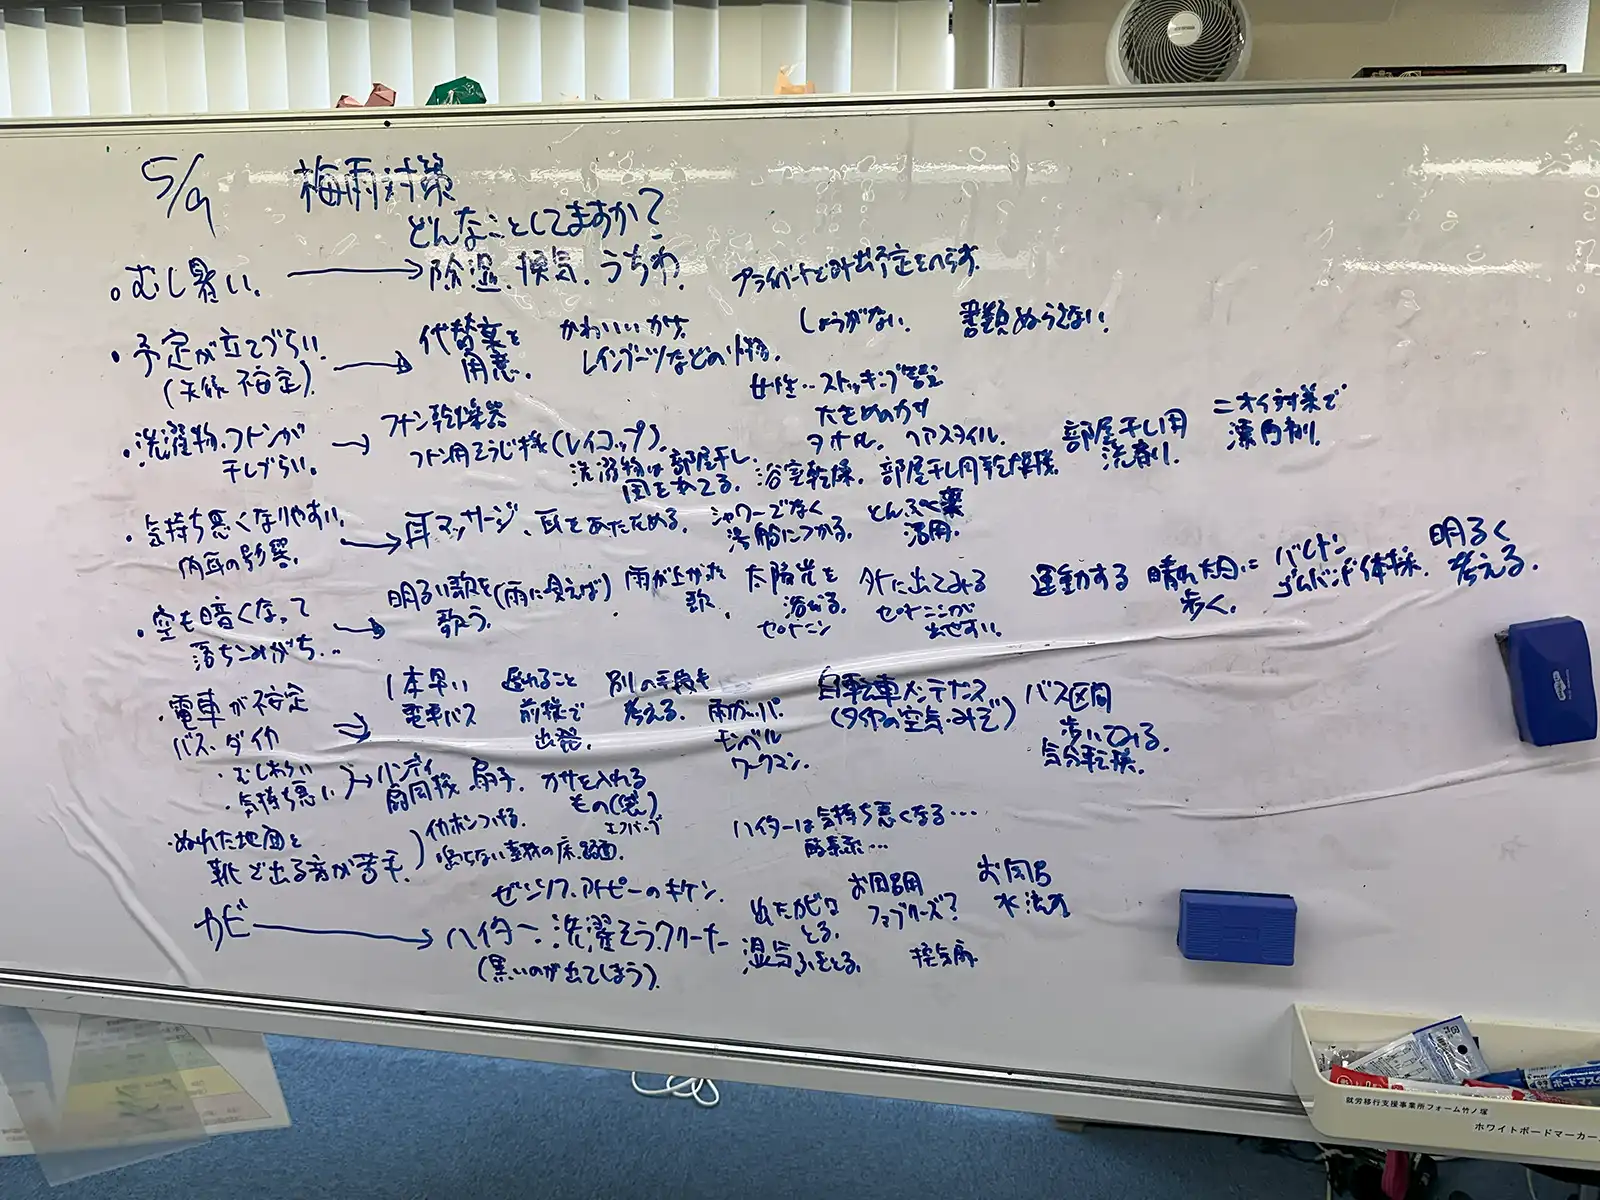 5/9 梅雨対策
どんなことしてますか?
。むし暑い. → 除湿. 換気. うちわ. プライベート 外出予定を
しょうがない. 書類ぬらさない.
・予定が立てづらい. → 代替案を かわいいカサ.
(天候不安定). 用意. レインブーツなどの小物.
女性…ストッキング
大きめのカサ
タオル. ヘアスタイル.
・洗濯物.フトンが → フトン乾燥器
干しづらい. フトン用そうじ機(レイコップ).
洗濯物は部屋干し. 浴室乾燥. 部屋干し用乾燥機. 部屋干し用 ニオイ対策で
風をあてる. 洗剤. 漂白剤.
・気持ち悪くなりやすい. → 耳マッサージ、耳をあたためる. シャワーでなく とんぷく薬
内耳の影響. 湯船につかる. 活用.
・空も暗くなって → 明るい歌を(雨に唄えば) 雨が上がった 太陽光を 外に出てみる 運動する 晴れた日に バレトン 明るく
落ちこみがち... 歌う. 歌. 浴びる. セロトニンが 歩く. ゴムバンド体操. 考える.
セロトニン 出やすい.
・電車が不安定 → 1本早い 遅れること 別の手段を 自転車メンテナンス バス区間
バス.ダイヤ 電車バス 前提で 考える. 雨ガッパ. (タイヤの空気.みぞ) 歩いてみる.
出発. モンベル 気分転換.
ワークマン.
・むしあつい → ハンディ 扇子. カサを入れる
・気持ち悪い 扇風機 もの(袋)
エコバッグ
・ぬれた地面と ) イヤホンつける.
靴で出る音が苦手. ・鳴らない素材の床.路面.
ハイターは気持ち悪くなる…
酵素系…
ゼンソク.アトピーのキケン.
カビ → ハイター. 洗濯そうクリーナー
(黒いのが出てしまう).
出たカビは お風呂用 お風呂
とる. ファブリーズ? 水
湿気ふきとる. 換気扇
就労移行支援事業所フォーム竹ノ塚
ホワイトボードマーカー
ボードマスター